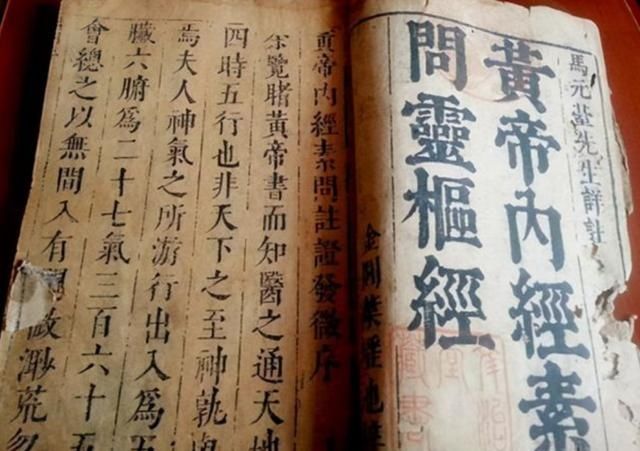 馬元臺先生詳註
黃帝內經素
問靈樞經
黃帝內經素問註證發微序
余覽睹黃帝書而知醫之通天地
四時五行也非天下之至神孰
焉夫人神氣之所游行出入爲五
臟六腑爲二十七氣三百六十五
會總之以無間入有間微渺荒忽